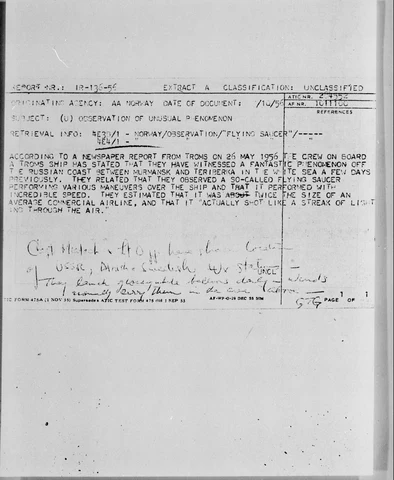 REPORT NR.: IR-136-56 EXTRACT A CLASSIFICATION: UNCLASSIFIED
ATIC NR.
ORIGINATING AGENCY: AA NORWAY DATE OF DOCUMENT: /14/56 AF NR. 1011100
REFERENCES
SUBJECT: (U) OBSERVATION OF UNUSUAL PHENOMENON
RETRIEVAL INFO: 4E30/1 - NORWAY/OBSERVATION/"FLYING SAUCER"/-----
4E4/1 -
ACCORDING TO A NEWSPAPER REPORT FROM TROMS ON 26 MAY 1956 THE CREW ON BOARD
A TROMS SHIP HAS STATED THAT THEY HAVE WITNESSED A FANTASTIC PHENOMENON OFF
THE RUSSIAN COAST BETWEEN MURMANSK AND TERIBERKA IN THE WHITE SEA A FEW DAYS
PREVIOUSLY. THEY RELATED THAT THEY OBSERVED A SO-CALLED FLYING SAUCER
PERFORMING VARIOUS MANEUVERS OVER THE SHIP AND THAT IT PERFORMED WITH
INCREDIBLE SPEED. THEY ESTIMATED THAT IT WAS ABOUT TWICE THE SIZE OF AN
AVERAGE COMMERCIAL AIRLINE, AND THAT IT "ACTUALLY SHOT LIKE A STREAK OF LIGHT
THROUGH THE AIR."
of USSR, Swedish
UNCL
They launch balloons daily - winds
carry them in the area
FORM 478A (1 NOV 55) Supersedes ATIC TEST FORM 478 1 SEP 53 PAGE 1 OF 1